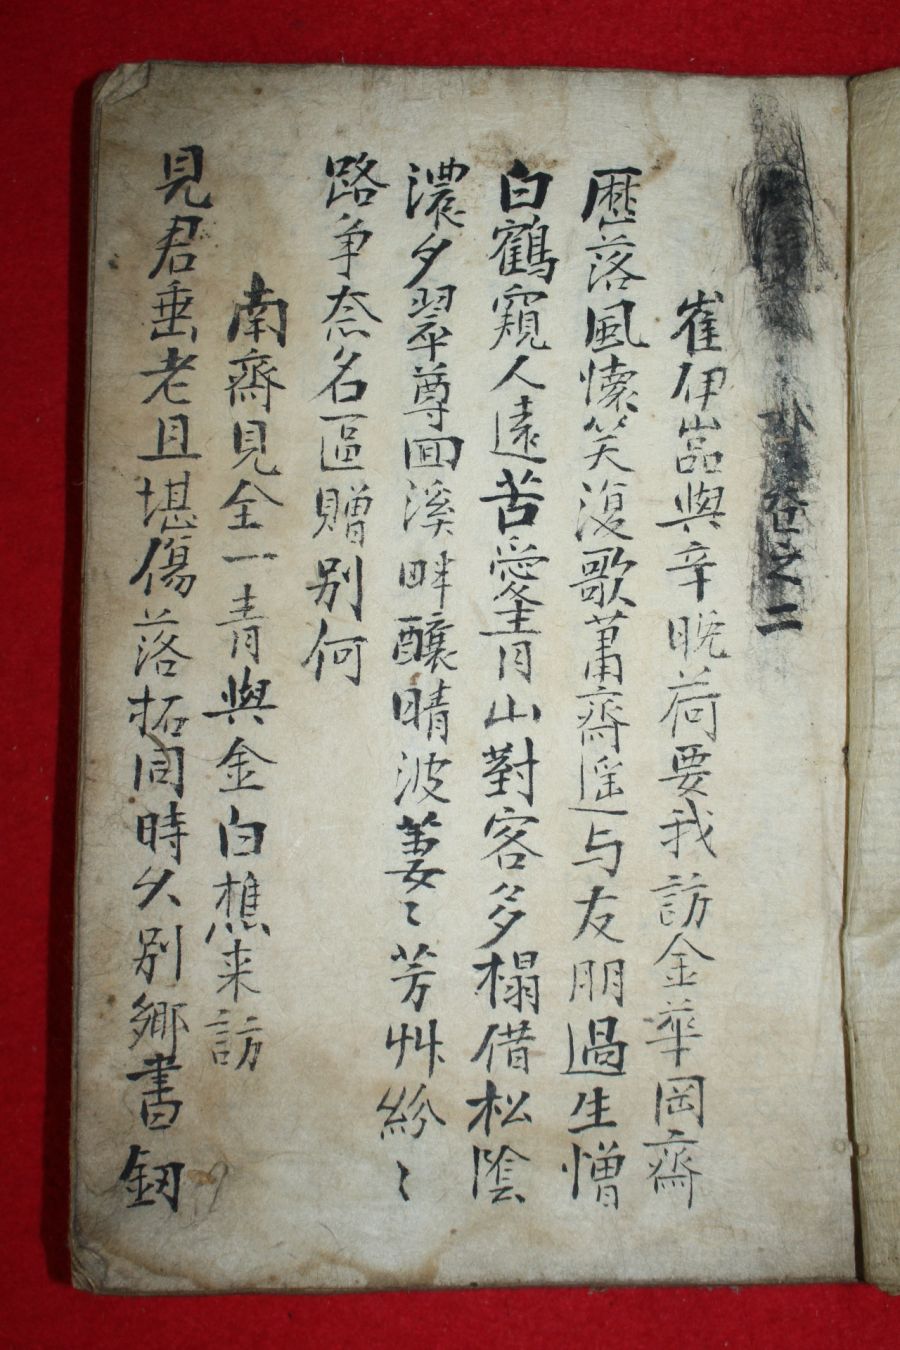 卷之二
崔伊嵓與辛晚荷要我訪金華岡齋
歷落風懷笑復歌蕭齋遥与友朋過生憎
白鶴窺人遠苦愛青山對客多榻借松陰
濃夕翠尊回溪畔釀晴波萋〻芳艸紛〻
路争奈名區贈别何
南齋見全一青與金白樵来訪
見君垂老且堪傷落拓同時久别鄉書釰